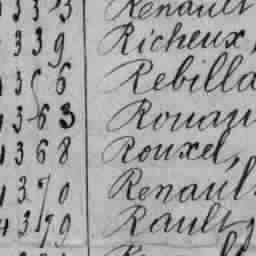 Renault
339 Richeux,
356 Rebilla
363 Rouau
1368 Rouxel,
1370 Renaul
4379 Rault